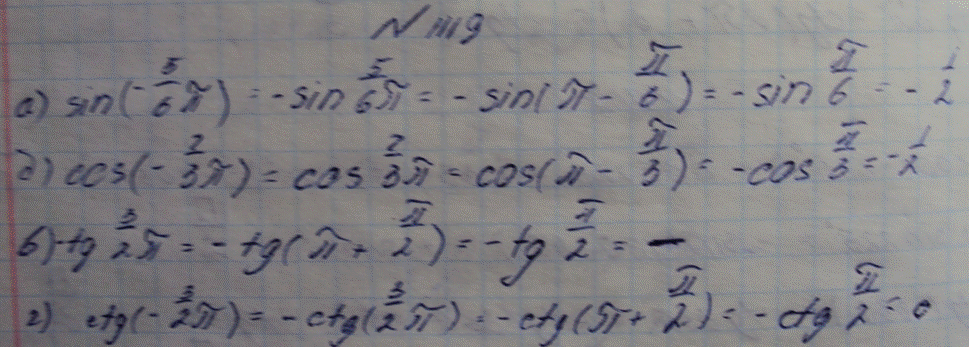 № 119
а) sin(-5/6π) = -sin 5/6π = -sin(π - π/6) = -sin π/6 = -1/2
б) cos(-2/3π) = cos 2/3π = cos(π - π/3) = -cos π/3 = -1/2
в) -tg 3/2π = -tg(π + π/2) = -tg π/2 = —
г) ctg(-3/2π) = -ctg(3/2π) = -ctg(π + π/2) = -ctg π/2 = 0